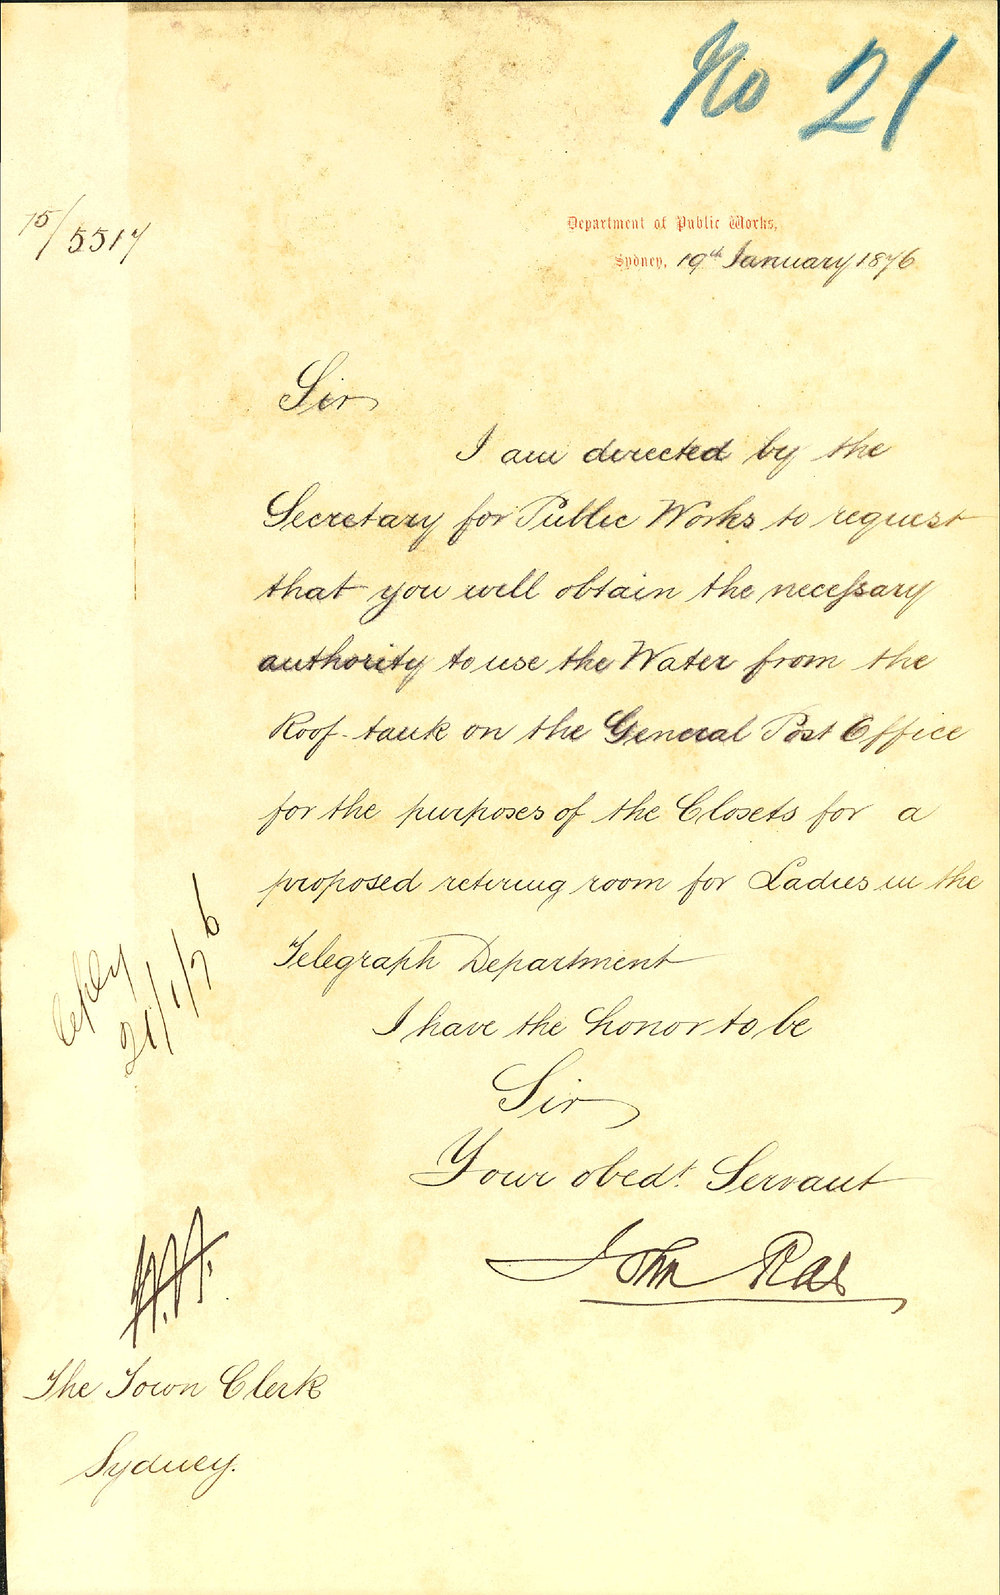 No 21
75/5517
Department of Public Works,
Sydney, 19th January 1876
Sir
I am directed by the
Secretary for Public Works to request
that you will obtain the necessary
authority to use the Water from the
Roof-tank on the General Post Office
for the purposes of the Closets for a
proposed retiring room for Ladies in the
Telegraph Department
I have the honor to be
Sir
Your obedt. Servant
John Rae
reply
21/1/76
The Town Clerk
Sydney.